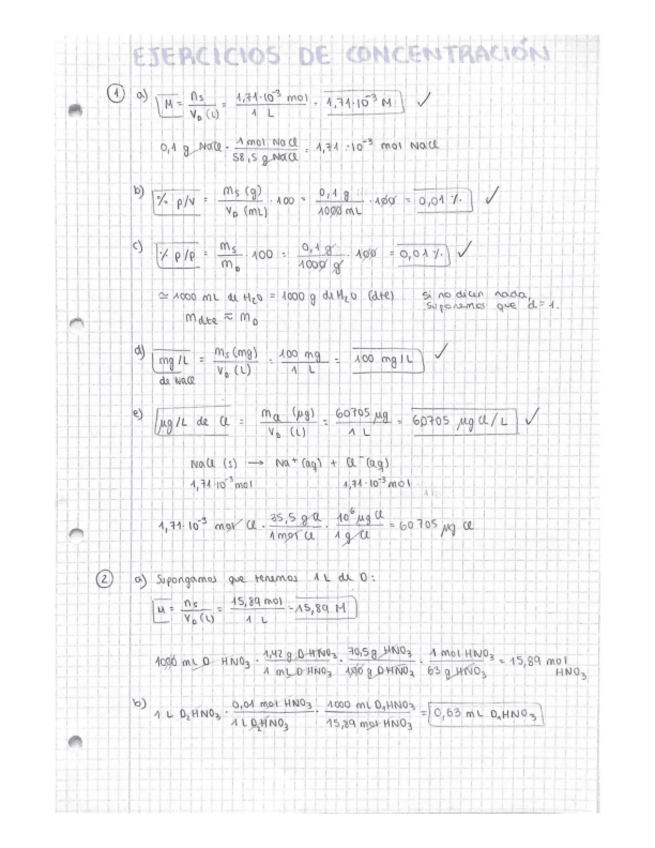 EJERCICIOS DE CONCENTRACIÓN
① a) M = ns / VD (L) = 1,71·10⁻³ mol / 1 L = 1,71·10⁻³ M ✓
0,1 g NaCl · 1 mol NaCl / 58,5 g NaCl = 1,71·10⁻³ mol NaCl
b) % p/v = ms (g) / VD (mL) · 100 = 0,1 g / 1000 mL · 100 = 0,01 % ✓
c) % p/p = ms / mD · 100 = 0,1 g / 1000 g · 100 = 0,01 % ✓
≃ 1000 mL de H₂O = 1000 g de H₂O (dte) si no dicen nada,
mdte ≈ mD suponemos que d=1.
d) mg/L = ms (mg) / VD (L) = 100 mg / 1 L = 100 mg/L ✓
de NaCl
e) µg/L de Cl = mCl (µg) / VD (L) = 60705 µg / 1 L = 60705 µg Cl/L ✓
NaCl (s) → Na⁺ (aq) + Cl⁻ (aq)
1,71·10⁻³ mol 1,71·10⁻³ mol
1,71·10⁻³ mol Cl · 35,5 g Cl / 1 mol Cl · 10⁶ µg Cl / 1 g Cl = 60705 µg Cl
② a) Supongamos que tenemos 1 L de D:
M = ns / VD (L) = 15,89 mol / 1 L = 15,89 M
1000 mL D HNO₃ · 1,42 g D HNO₃ / 1 mL D HNO₃ · 70,5 g HNO₃ / 100 g D HNO₃ · 1 mol HNO₃ / 63 g HNO₃ = 15,89 mol
HNO₃
b) 1 L D₂HNO₃ · 0,01 mol HNO₃ / 1 L D₂HNO₃ · 1000 mL D₁HNO₃ / 15,89 mol HNO₃ = 0,63 mL D₁HNO₃